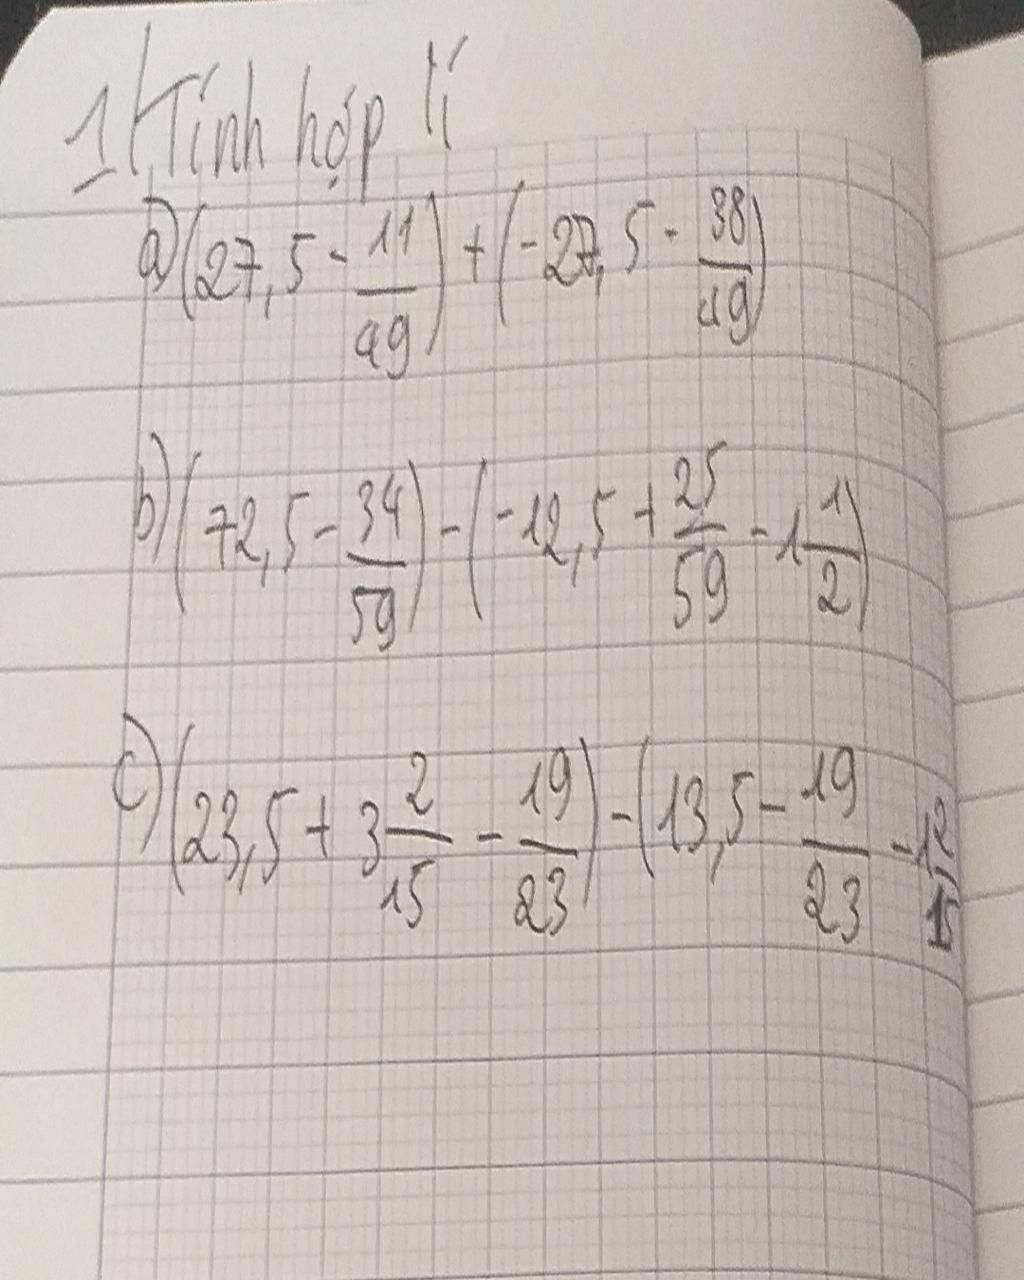 1/ Tính hợp lí
a) (27,5 - 11/49) + (-27,5 - 38/49)
b) (72,5 - 34/59) - (-12,5 + 25/59 - 1 1/2)
c) (23,5 + 3 2/15 - 19/23) - (13,5 - 19/23 -